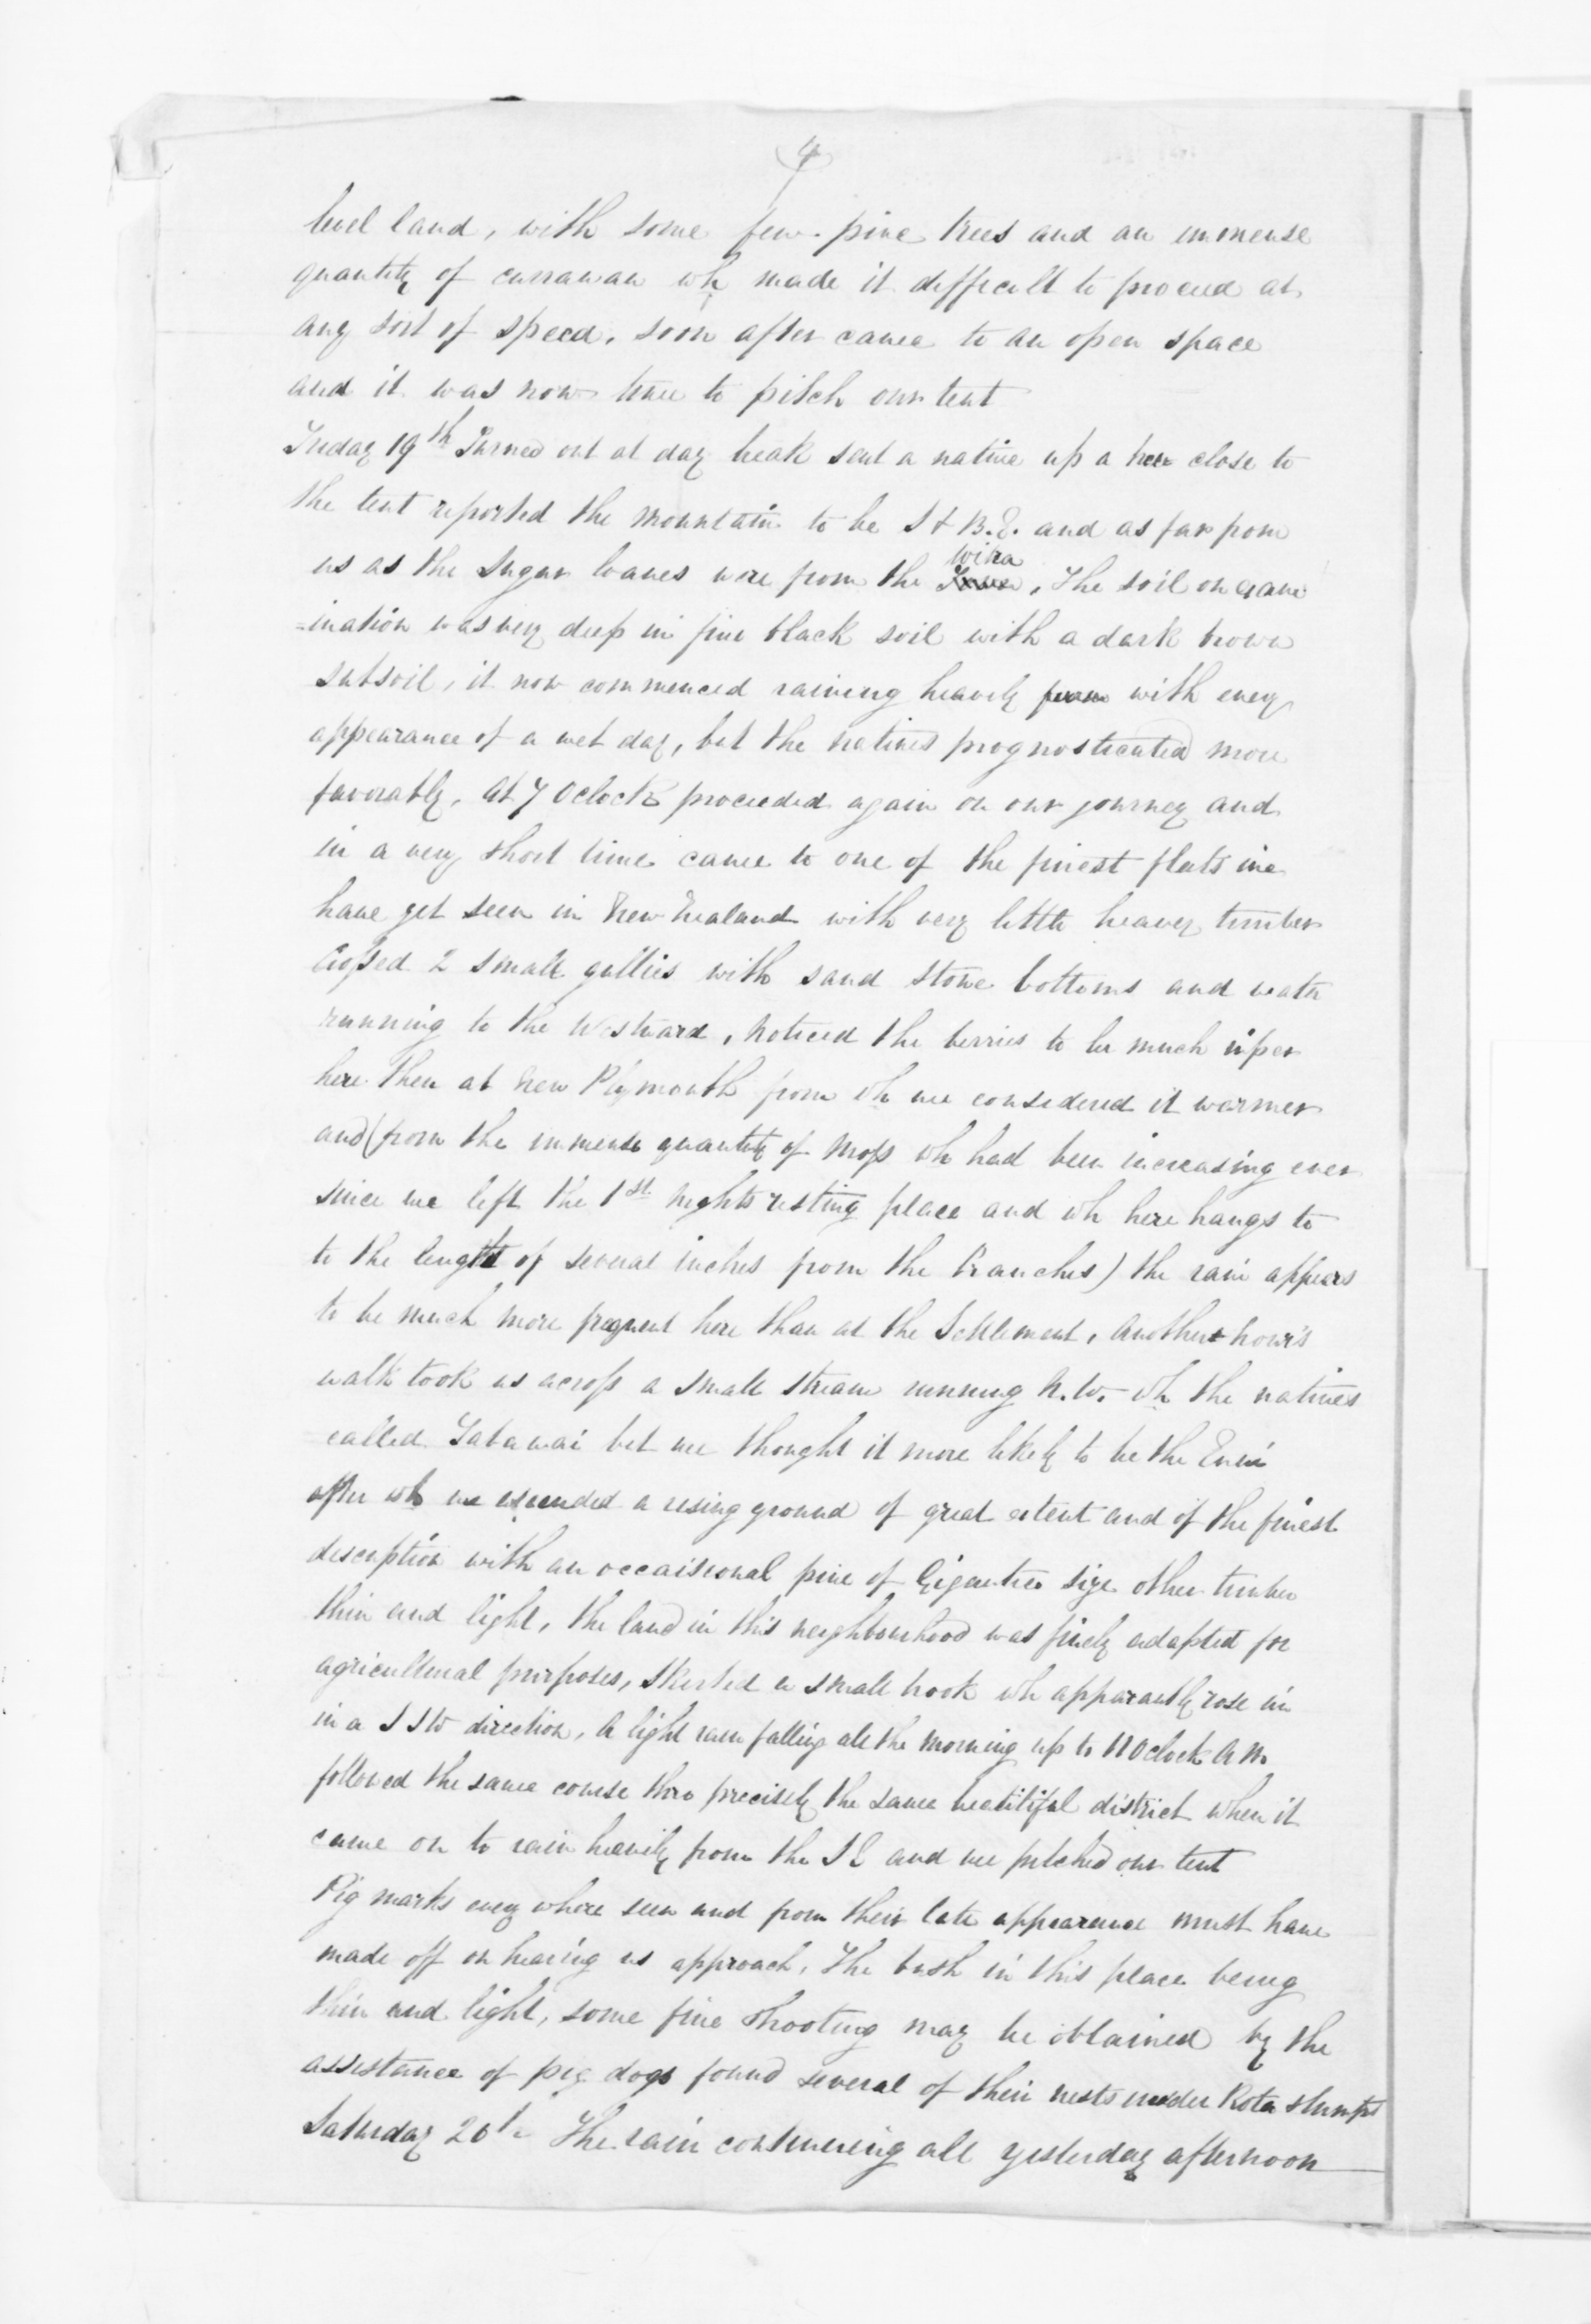 4
level land, with some few pine trees and an immense
quantity of currawaw wh made it difficult to proceed at
any sort of speed, soon after came to an open space
and it was now time to pitch our tent
Friday 19th Turned out at day break sent a native up a tree close to
the tent reported the mountain to be S & B.E. and as far from
us as the Sugar loaves were from the Wira, The soil on exam
=ination was very deep in fine black soil with a dark brown
subsoil, it now commenced raining heavily with every
appearance of a wet day, but the natives prognosticated more
favorably, at 7 Oclock proceeded again on our journey and
in a very short time came to one of the finest flats we
have yet seen in New Zealand with very little heavey timber
Crossed 2 small gullies with sand stone bottoms and water
running to the Westward, Noticed the berries to be much riper
here then at New Plymouth from wh we considered it warmer
and (from the immense quantity of Moss wh had been increasing ever
since we left the 1st nights resting place and wh here hangs to
to the length of several inches from the branches) the rain appears
to be much more frequent here than at the Settlement, another hour's
walk took us across a small stream running N.W. wh the natives
called Tatawai but we thought it more likely to be the Enui
after wh we assended a rising ground of great extent and of the finest
description with an occaisional pine of Gigantic size other timber
thin and light, the land in this neighbourhood was finely adapted for
agricultural purposes, Skirted a small brook wh apparantly rose in
in a S S W direction, A light rain falling all the Morning up to 11 Oclock A M.
followed the same course thro precisely the same beautiful district when it
came on to rain heavily from the S E and we pitched our tent
Pig marks every where seen and from their late appearance must have
made off on hearing us approach, The bush in this place being
thin and light, some fine shooting may be obtained by the
assistance of pig dogs found several of their nests under Rota stumps
Saturday 20th The rain continueing all yesterday afternoon